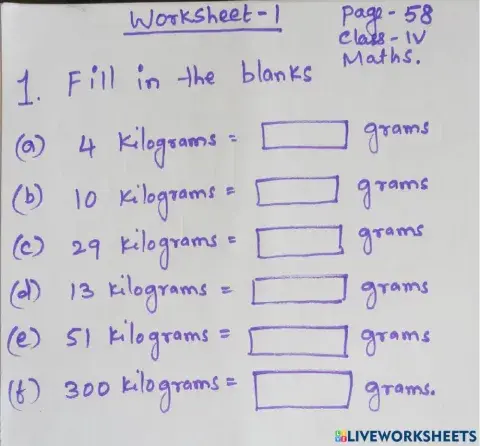 Worksheet-1
Page - 58
Class - IV
Maths.
1. Fill in the blanks
(a) 4 kilograms = grams
(b) 10 kilograms = grams
(c) 29 kilograms = grams
(d) 13 kilograms = grams
(e) 51 kilograms = grams
(f) 300 kilograms = grams.
LIVEWORKSHEETS